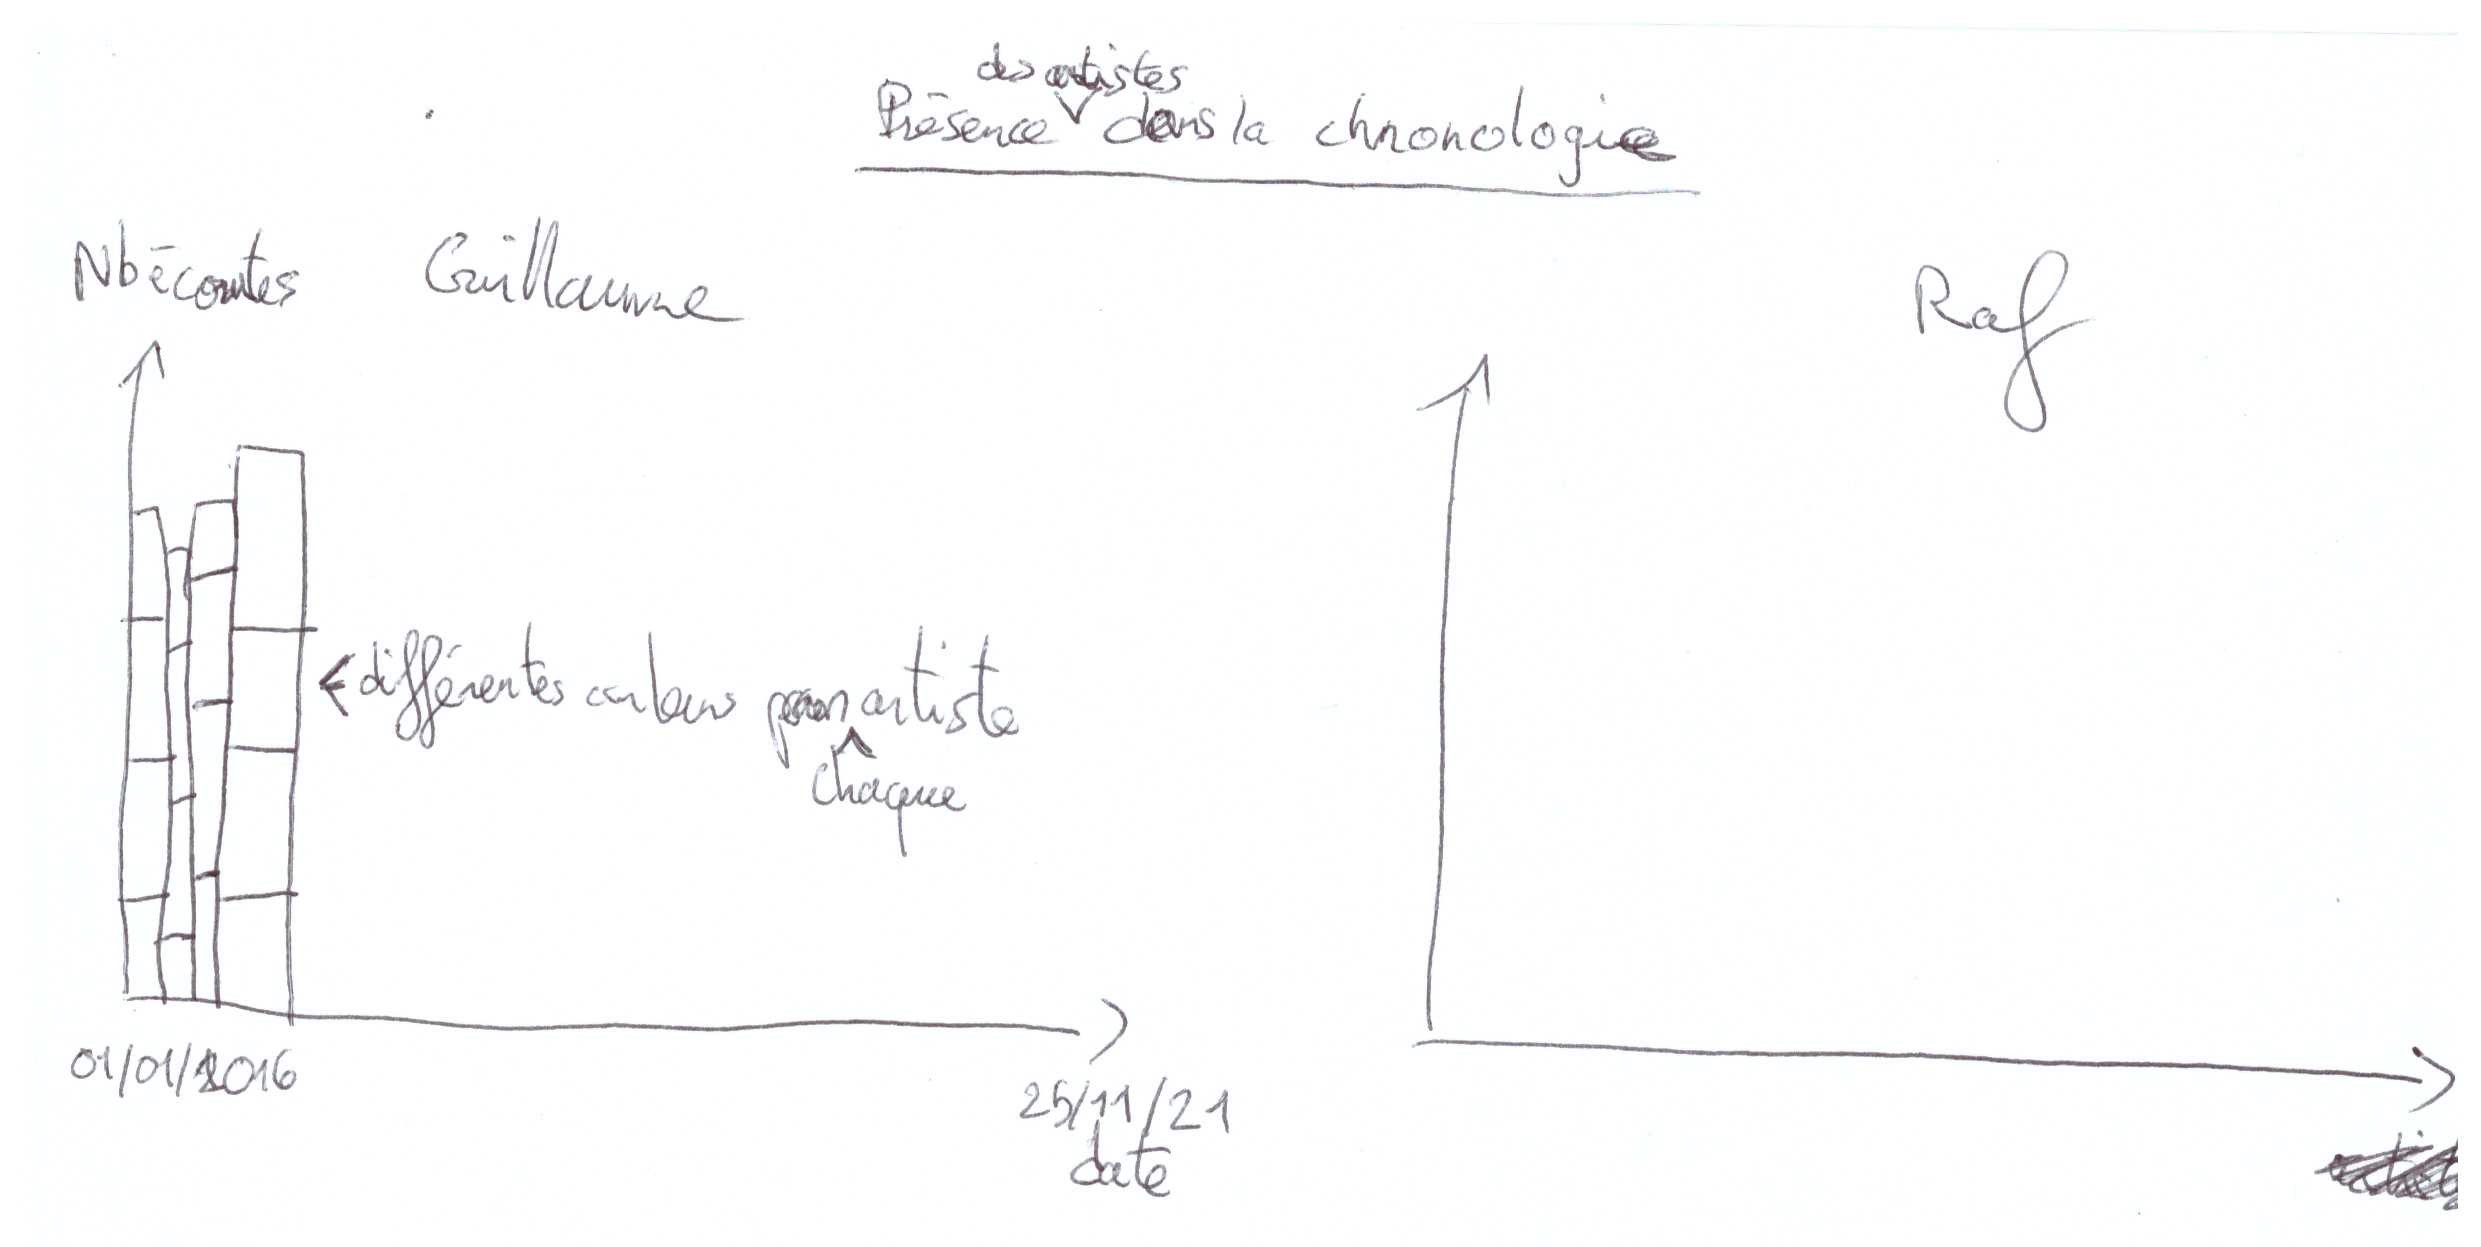 Présence des artistes dans la chronologie
Nb écoutes
Guillaume
Raf
différentes couleurs pour chaque artiste
01/01/2016
25/11/21
date